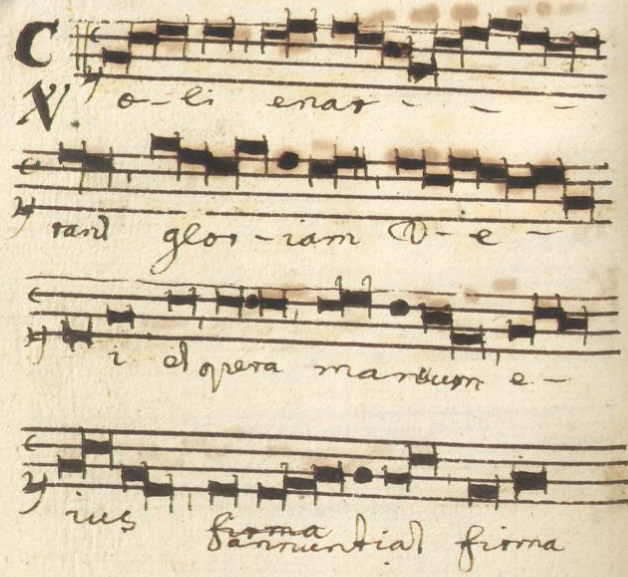 C
V. o-li enar - - -
rant glor-iam D-e -
i et opera manuum e-
ius firma annuntiat firma